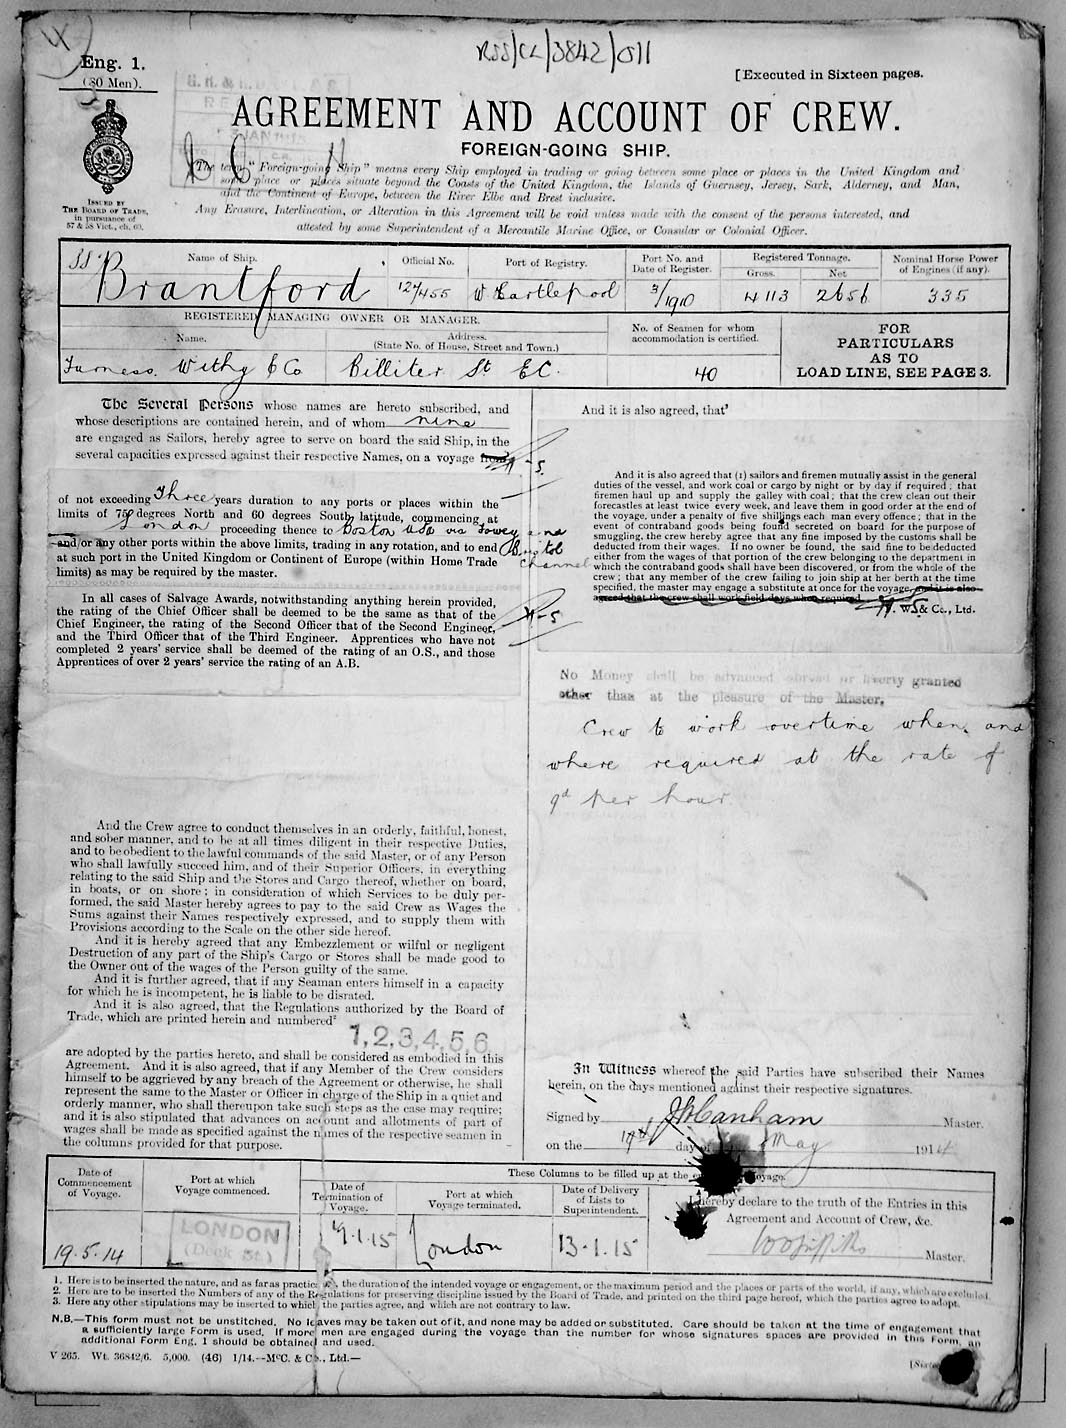 RSS/CL/3842/011
Eng. 1.
(80 Men).
[Executed in Sixteen pages.
AGREEMENT AND ACCOUNT OF CREW.
FOREIGN-GOING SHIP.
ISSUED BY
THE BOARD OF TRADE,
in pursuance of
57 & 58 Vict., ch. 60.
The term "Foreign-going Ship" means every Ship employed in trading or going between some place or places in the United Kingdom and
some place or places situate beyond the Coasts of the United Kingdom, the Islands of Guernsey, Jersey, Sark, Alderney, and Man,
and the Continent of Europe, between the River Elbe and Brest inclusive.
Any Erasure, Interlineation, or Alteration in this Agreement will be void unless made with the consent of the persons interested, and
attested by some Superintendent of a Mercantile Marine Office, or Consular or Colonial Officer.
Name of Ship.
Official No.
Port of Registry.
Port No. and
Date of Register.
Registered Tonnage.
Gross.
Net
Nominal Horse Power
of Engines (if any).
SS Brantford
127455
W Hartlepool
3/1910
4113
2656
335
REGISTERED MANAGING OWNER OR MANAGER.
Name.
Address.
(State No. of House, Street and Town.)
No. of Seamen for whom
accommodation is certified.
FOR
PARTICULARS
AS TO
LOAD LINE, SEE PAGE 3.
Furness Withy & Co
Billiter St EC.
40
The Several Persons whose names are hereto subscribed, and
whose descriptions are contained herein, and of whom nine
are engaged as Sailors, hereby agree to serve on board the said Ship, in the
several capacities expressed against their respective Names, on a voyage from
of not exceeding Three years duration to any ports or places within the
limits of 75 degrees North and 60 degrees South latitude, commencing at
London proceeding thence to Boston USA via Fowey and
Bristol Channel
and/or any other ports within the above limits, trading in any rotation, and to end
at such port in the United Kingdom or Continent of Europe (within Home Trade
limits) as may be required by the master.
In all cases of Salvage Awards, notwithstanding anything herein provided,
the rating of the Chief Officer shall be deemed to be the same as that of the
Chief Engineer, the rating of the Second Officer that of the Second Engineer,
and the Third Officer that of the Third Engineer. Apprentices who have not
completed 2 years' service shall be deemed of the rating of an O.S., and those
Apprentices of over 2 years' service the rating of an A.B.
And the Crew agree to conduct themselves in an orderly, faithful, honest,
and sober manner, and to be at all times diligent in their respective Duties,
and to be obedient to the lawful commands of the said Master, or of any Person
who shall lawfully succeed him, and of their Superior Officers, in everything
relating to the said Ship and the Stores and Cargo thereof, whether on board,
in boats, or on shore; in consideration of which Services to be duly per-
formed, the said Master hereby agrees to pay to the said Crew as Wages the
Sums against their Names respectively expressed, and to supply them with
Provisions according to the Scale on the other side hereof.
And it is hereby agreed that any Embezzlement or wilful or negligent
Destruction of any part of the Ship's Cargo or Stores shall be made good to
the Owner out of the wages of the Person guilty of the same.
And it is further agreed, that if any Seaman enters himself in a capacity
for which he is incompetent, he is liable to be disrated.
And it is also agreed, that the Regulations authorized by the Board of
Trade, which are printed herein and numbered²
1,2,3,4,5,6
are adopted by the parties hereto, and shall be considered as embodied in this
Agreement. And it is also agreed, that if any Member of the Crew considers
himself to be aggrieved by any breach of the Agreement or otherwise, he shall
represent the same to the Master or Officer in charge of the Ship in a quiet and
orderly manner, who shall thereupon take such steps as the case may require;
and it is also stipulated that advances on account and allotments of part of
wages shall be made as specified against the names of the respective seamen in
the columns provided for that purpose.
And it is also agreed, that³
And it is also agreed that (1) sailors and firemen mutually assist in the general
duties of the vessel, and work coal or cargo by night or by day if required; that
firemen haul up and supply the galley with coal; that the crew clean out their
forecastles at least twice every week, and leave them in good order at the end of
the voyage, under a penalty of five shillings each man every offence; that in the
event of contraband goods being found secreted on board for the purpose of
smuggling, the crew hereby agree that any fine imposed by the customs shall be
deducted from their wages. If no owner be found, the said fine to be deducted
either from the wages of that portion of the crew belonging to the department in
which the contraband goods shall have been discovered, or from the whole of the
crew; that any member of the crew failing to join ship at her berth at the time
specified, the master may engage a substitute at once for the voyage, and it is also
agreed that the crew shall work field days when required.
W. & Co., Ltd.
No Money shall be advanced abroad or liberty granted
other than at the pleasure of the Master.
Crew to work overtime when and
where required at the rate of
9d per hour
In Witness whereof the said Parties have subscribed their Names
herein, on the days mentioned against their respective signatures.
Signed by J Canham Master.
on the 19th day of May 1914
Date of
Commencement
of Voyage.
Port at which
Voyage commenced.
These Columns to be filled up at the end of the Voyage.
Date of
Termination of
Voyage.
Port at which
Voyage terminated.
Date of Delivery
of Lists to
Superintendent.
I hereby declare to the truth of the Entries in this
Agreement and Account of Crew, &c.
Master.
19.5.14
LONDON
(Dock St.)
9.1.15
London
13.1.15
1. Here is to be inserted the nature, and as far as practicable, the duration of the intended voyage or engagement, or the maximum period and the places or parts of the world, if any, which are excluded.
2. Here are to be inserted the Numbers of any of the Regulations for preserving discipline issued by the Board of Trade, and printed on the third page hereof, which the parties agree to adopt.
3. Here any other stipulations may be inserted to which the parties agree, and which are not contrary to law.
N.B.—This form must not be unstitched. No leaves may be taken out of it, and none may be added or substituted. Care should be taken at the time of engagement that
a sufficiently large Form is used. If more men are engaged during the voyage than the number for whose signatures spaces are provided in this Form, an
additional Form Eng. 1 should be obtained and used.
V 265. Wt. 36842/6. 5,000. (46) 1/14.—McC. & Co., Ltd.—